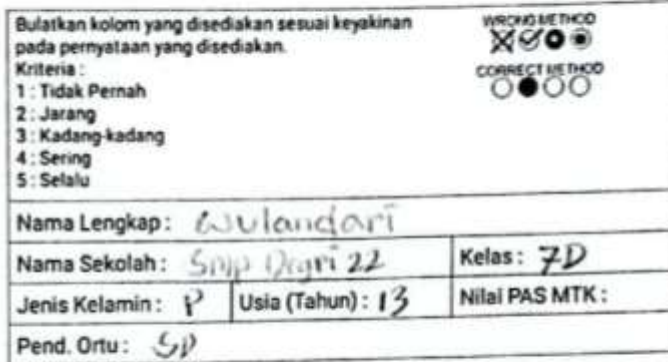 Bulatkan kolom yang disediakan sesuai keyakinan
pada pernyataan yang disediakan.
Kriteria :
1 : Tidak Pernah
2 : Jarang
3 : Kadang-kadang
4 : Sering
5 : Selalu
WRONG METHOD
CORRECT METHOD
Nama Lengkap : Wulandari
Nama Sekolah : Smp 22
Kelas : 7D
Jenis Kelamin : P
Usia (Tahun) : 13
Nilai PAS MTK :
Pend. Ortu : SD